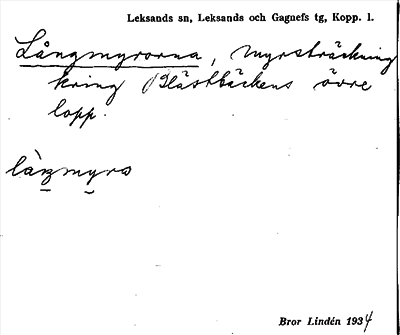 Leksands sn, Leksands och Gagnefs tg, Kopp. l.
Långmyrorna, Myrsträckning
kring Blästbäckens övre
lopp.
làŋmyrọ
Bror Lindén 1934